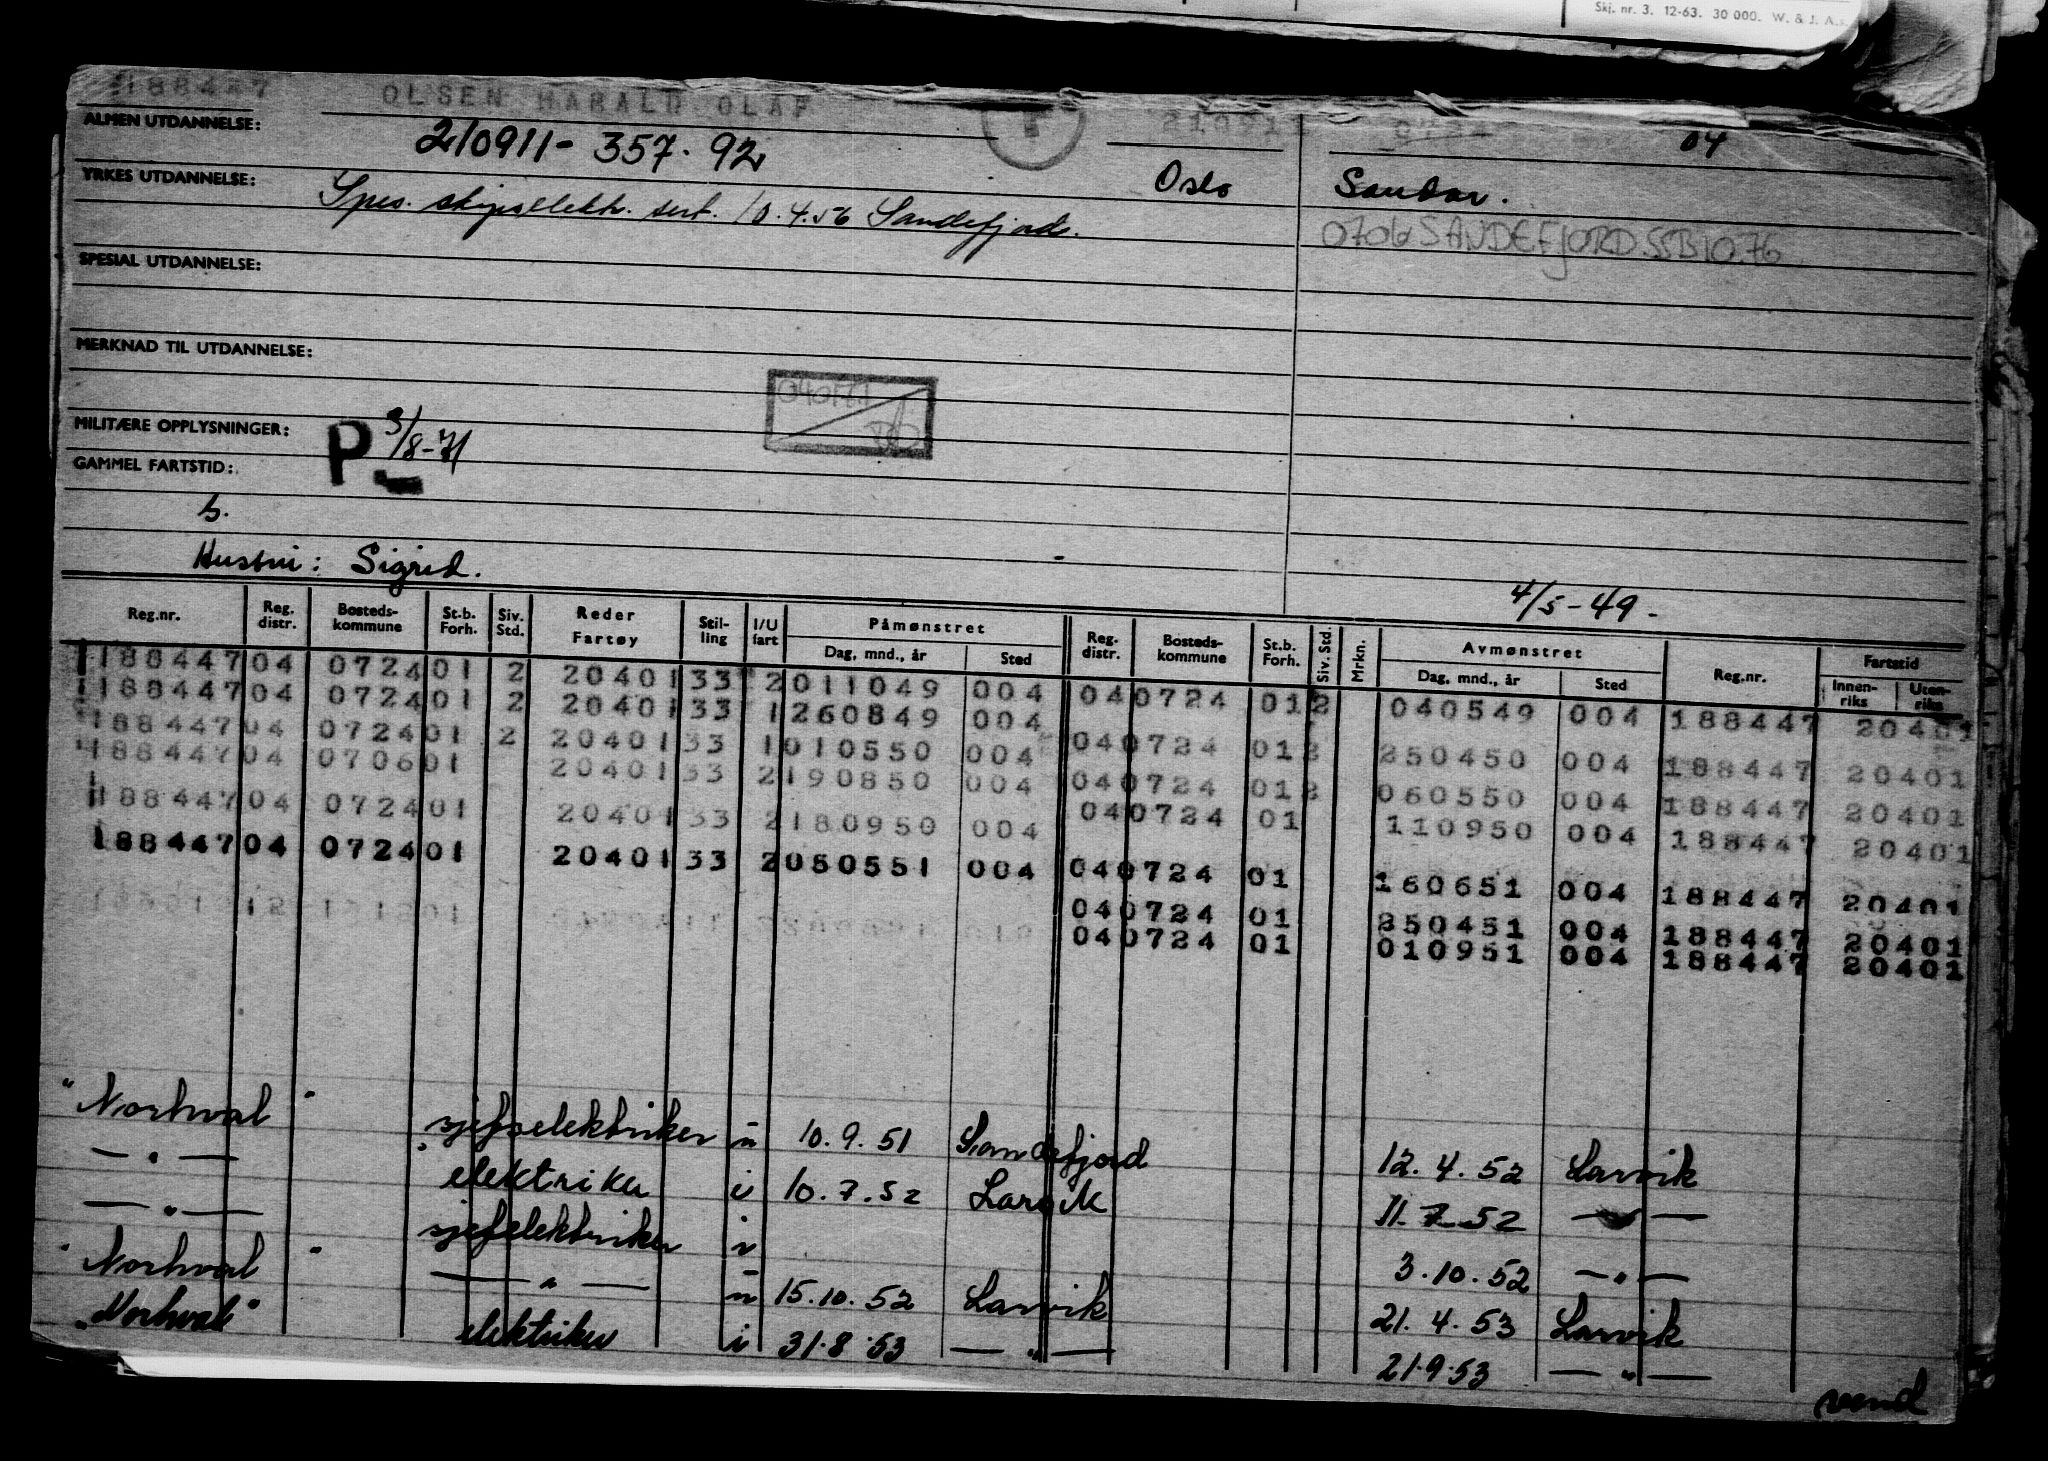 Skj. nr. 3. 12-63. 30 000. W. & J. A.s
188447 OLSEN HARALD OLAF 21091 0724 04
ALMEN UTDANNELSE: 210911-357.92
YRKES UTDANNELSE: Oslo Sandar.
Spes. skipselektr. sert. 10.4.56 Sandefjord.
0706 SANDEFJORD.SSB10.76
SPESIAL UTDANNELSE:
MERKNAD TIL UTDANNELSE:
040171
MILITÆRE OPPLYSNINGER: P 3/8-71
GAMMEL FARTSTID:
s.
Hustru: Sigrid.
4/5-49.-
Reg.nr. Reg. distr. Bosteds-kommune St.b. Forh. Siv. Std. Reder Fartøy Stil-ling I/U fart Påmønstret Dag, mnd., år Sted Reg. distr. Bosteds-kommune St.b. Forh. Siv. Std. Mrkn. Avmønstret Dag, mnd., år Sted Reg.nr. Fartstid Innen-riks Uten-riks
188447 04 0724 01 2 20401 33 2 011049 004 04 0724 01 2 040549 004 188447 20401
188447 04 0724 01 2 20401 33 1 260849 004
188447 04 0724 01 2 20401 33 1 010550 004 04 0724 01 2 250450 004 188447 20401
188447 04 0706 01 20401 33 2 190850 004 04 0724 01 2 060550 004 188447 20401
188447 04 0724 01 20401 33 2 180950 004 04 0724 01 110950 004 188447 20401
188447 04 0724 01 20401 33 2 050551 004 04 0724 01 160651 004 188447 20401
04 0724 01 250451 004 188447 20401
04 0724 01 010951 004 188447 20401
"Norhval" sjefselektriker u 10.9.51 Sandefjord 12.4.52 Larvik
— " — elektriker i 10.7.52 Larvik 11.7.52 — " —
— " — sjefelektriker i 3.10.52 — " —
"Norhval" — " — u 15.10.52 Larvik 21.4.53 Larvik
"Norhval" elektriker i 31.8.53 — " — 21.9.53 — " —
vend